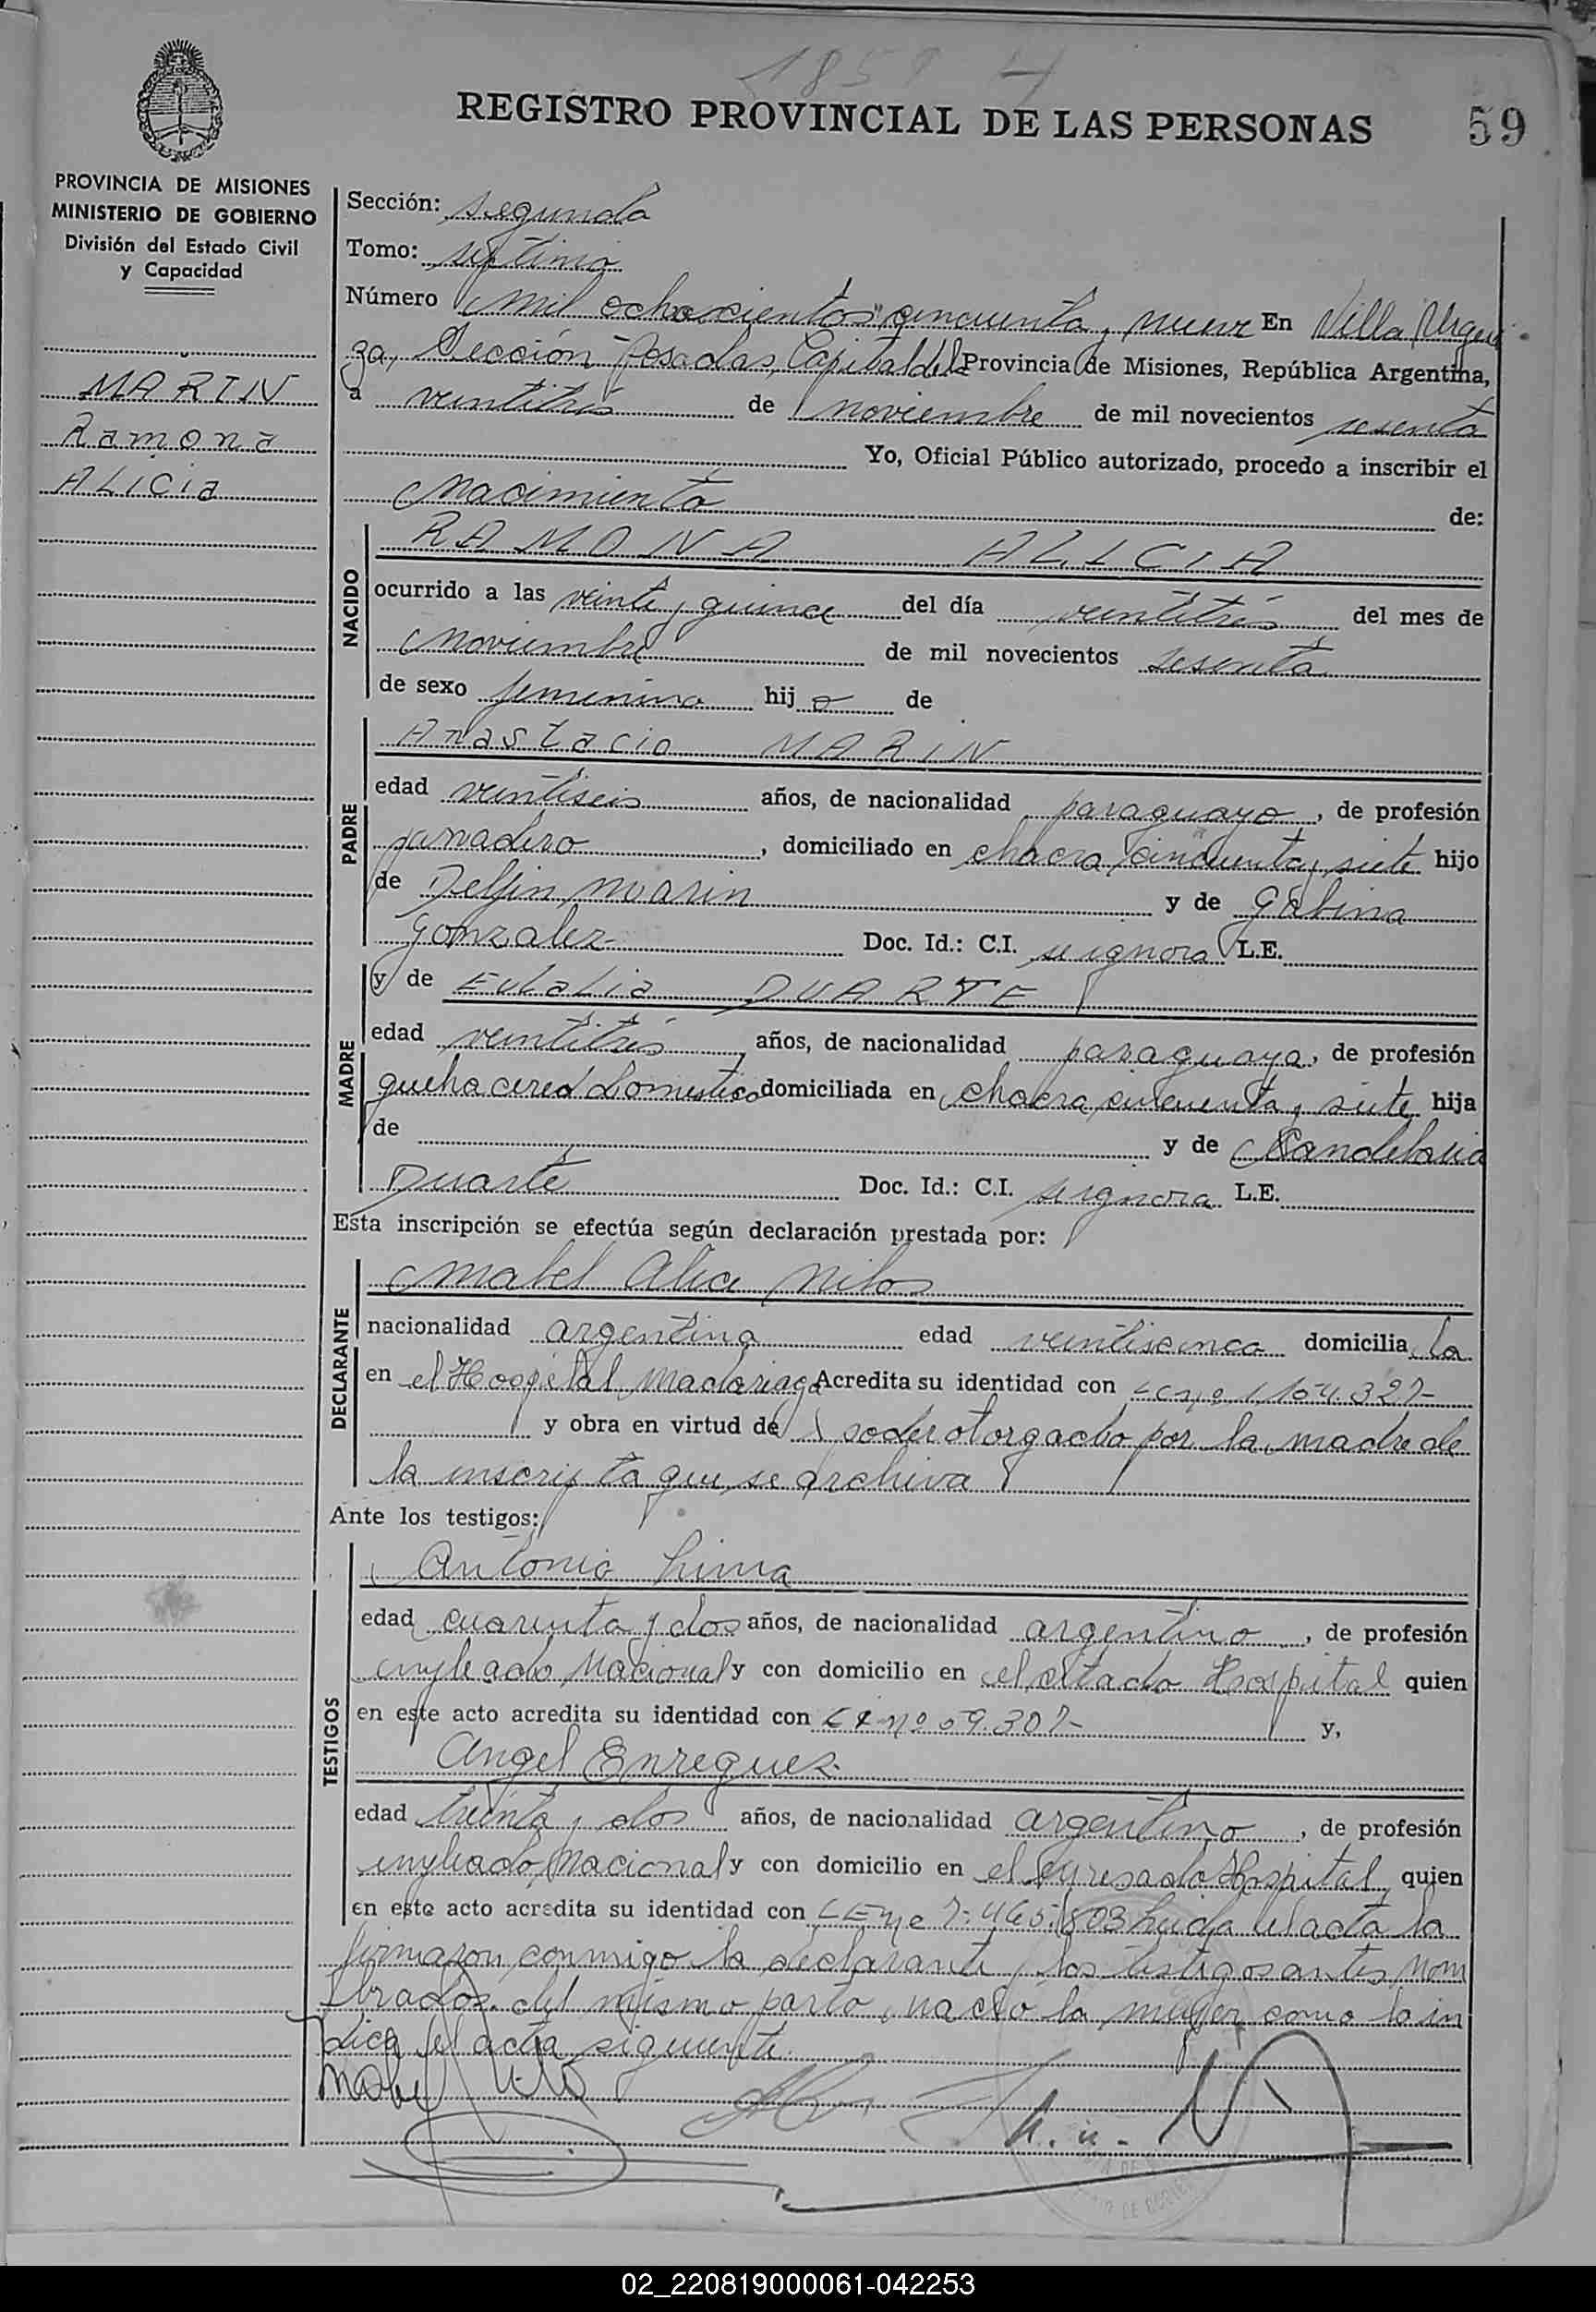 1859
REGISTRO PROVINCIAL DE LAS PERSONAS
59
PROVINCIA DE MISIONES
MINISTERIO DE GOBIERNO
División del Estado Civil
y Capacidad
MARIN
Ramona
ALicia
Sección: segunda
Tomo: septimo
Número mil ochocientos cincuenta y nueve En Villa Urqui
za, Sección Posadas, Capital de la Provincia de Misiones, República Argentina,
a veintitrés de noviembre de mil novecientos sesenta
Yo, Oficial Público autorizado, procedo a inscribir el
Nacimiento de:
NACIDO
RAMONA ALICIA
ocurrido a las veinte y quince del día veintitrés del mes de
noviembre de mil novecientos sesenta
de sexo femenino hij a de
PADRE
Anastacio MARIN
edad veintiseis años, de nacionalidad paraguayo, de profesión
, domiciliado en chacra cincuenta y siete hijo
de Delfin Marin y de Gabina
Gonzalez Doc. Id.: C.I. se ignora L.E.
MADRE
y de Eulalia DUARTE
edad veintitrés años, de nacionalidad paraguaya, de profesión
quehaceres domestico domiciliada en chacra cincuenta y siete hija
de y de Candelaria
Duarte Doc. Id.: C.I. se ignora L.E.
Esta inscripción se efectúa según declaración prestada por:
DECLARANTE
Mabel Alice Nilos
nacionalidad argentina edad veinticinco domicilia da
en el Hospital Madariaga Acredita su identidad con 1.104.327-
y obra en virtud de poder otorgado por la madre de
la inscripta que se archiva
Ante los testigos:
TESTIGOS
Antonio Lima
edad cuarenta y dos años, de nacionalidad argentino, de profesión
empleado Nacional y con domicilio en el citado Hospital quien
en este acto acredita su identidad con nº 59.307- y,
Angel Enreguez
edad treinta y dos años, de nacionalidad argentino, de profesión
empleado Nacional y con domicilio en el expresado Hospital, quien
en este acto acredita su identidad con LE nº 7.465.803 leida el acta la
firmaron conmigo la declarante y los testigos antes nom
brados. del mismo parto, nació la mujer como lo in
dica el acta siguiente.
02_220819000061-042253